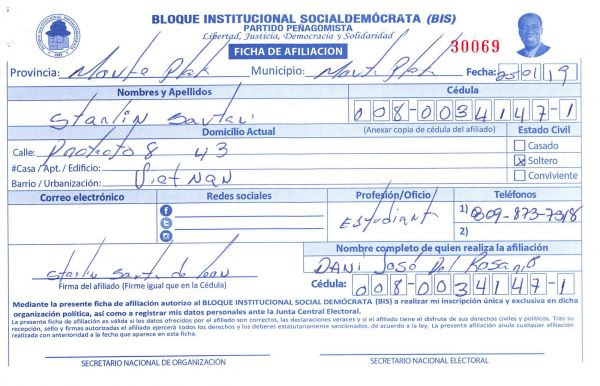 BLOQUE INSTITUCIONAL SOCIALDEMÓCRATA (BIS)
PARTIDO PEÑAGOMISTA
Libertad, Justicia, Democracia y Solidaridad
FICHA DE AFILIACION
30069
Provincia: Monte Plata Municipio: Monte Plata Fecha: 25/01/19
Nombres y Apellidos Cédula
Starlin 008-0034147-1
Domicilio Actual (Anexar copia de cédula del afiliado) Estado Civil
Calle: 8 43 Casado
#Casa / Apt. / Edificio: X Soltero
Barrio / Urbanización: Vietnan Conviviente
Correo electrónico Redes sociales Profesión/Oficio Teléfonos
Estudiant 1) 809-873-7318
2)
Nombre completo de quien realiza la afiliación
Starlin de DANI José Del Rosario
Firma del afiliado (Firme igual que en la Cédula) Cédula: 008-0034147-1
Mediante la presente ficha de afiliación autorizo al BLOQUE INSTITUCIONAL SOCIAL DEMÓCRATA (BIS) a realizar mi inscripción única y exclusiva en dicha
organización política, así como a registrar mis datos personales ante la Junta Central Electoral.
La presente ficha de afiliación es válida si los datos ofrecidos por el afiliado son correctos, las declaraciones veraces y si el afiliado tiene el disfrute de sus derechos civiles y políticos. Tras su
recepción, sello y firmas autorizadas el afiliado ejercerá todos los derechos y los deberes estatutariamente sancionados, de acuerdo a la ley. La presente afiliación anula cualquier afiliación
realizada con anterioridad a la fecha que aparece en esta ficha.
SECRETARIO NACIONAL DE ORGANIZACIÓN SECRETARIO NACIONAL ELECTORAL